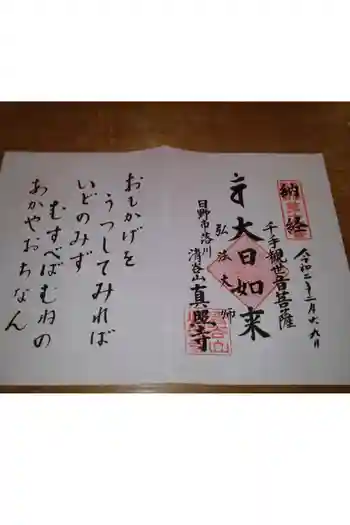 納経
令和二年二月六九日
千手観世音菩薩
大日如来
弘法大師
日野市落川
清谷山真照寺
おもかげを
うつしてみれば
いどのみず
むすべばむねの
あかやおちなん